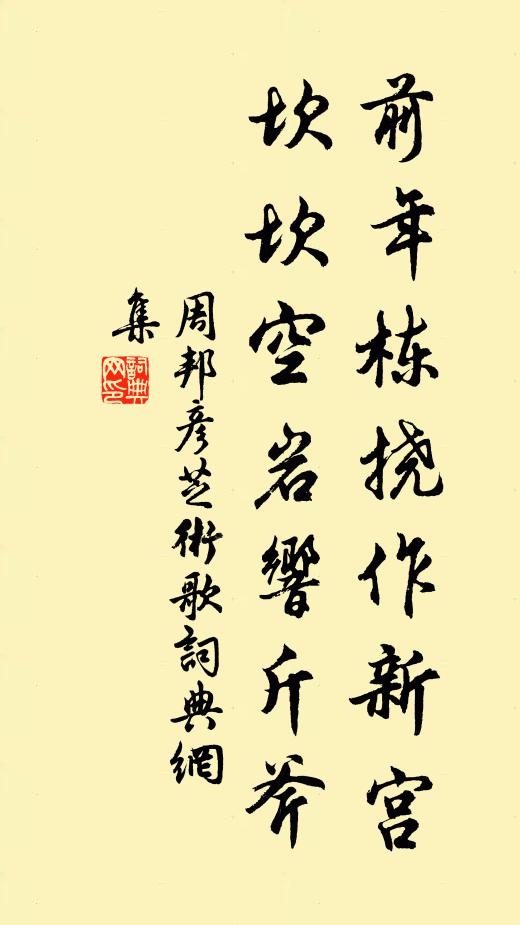 前年栋挠作新宫
坎坎空岩響斤斧
周邦彦芝術歌詞典網
集
詞典网印